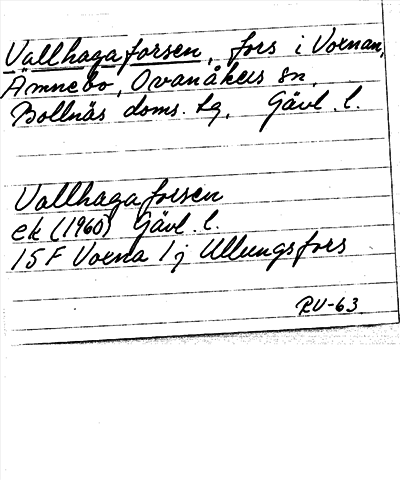 Vallhagaforsen, fors i Voxnan,
Ämnebo, Ovanåkers sn,
Bollnäs doms. tg, Gävl. l.
Vallhagaforsen
ek (1960) Gävl. l.
15F Voxna 1j Ullungsfors
RU-63